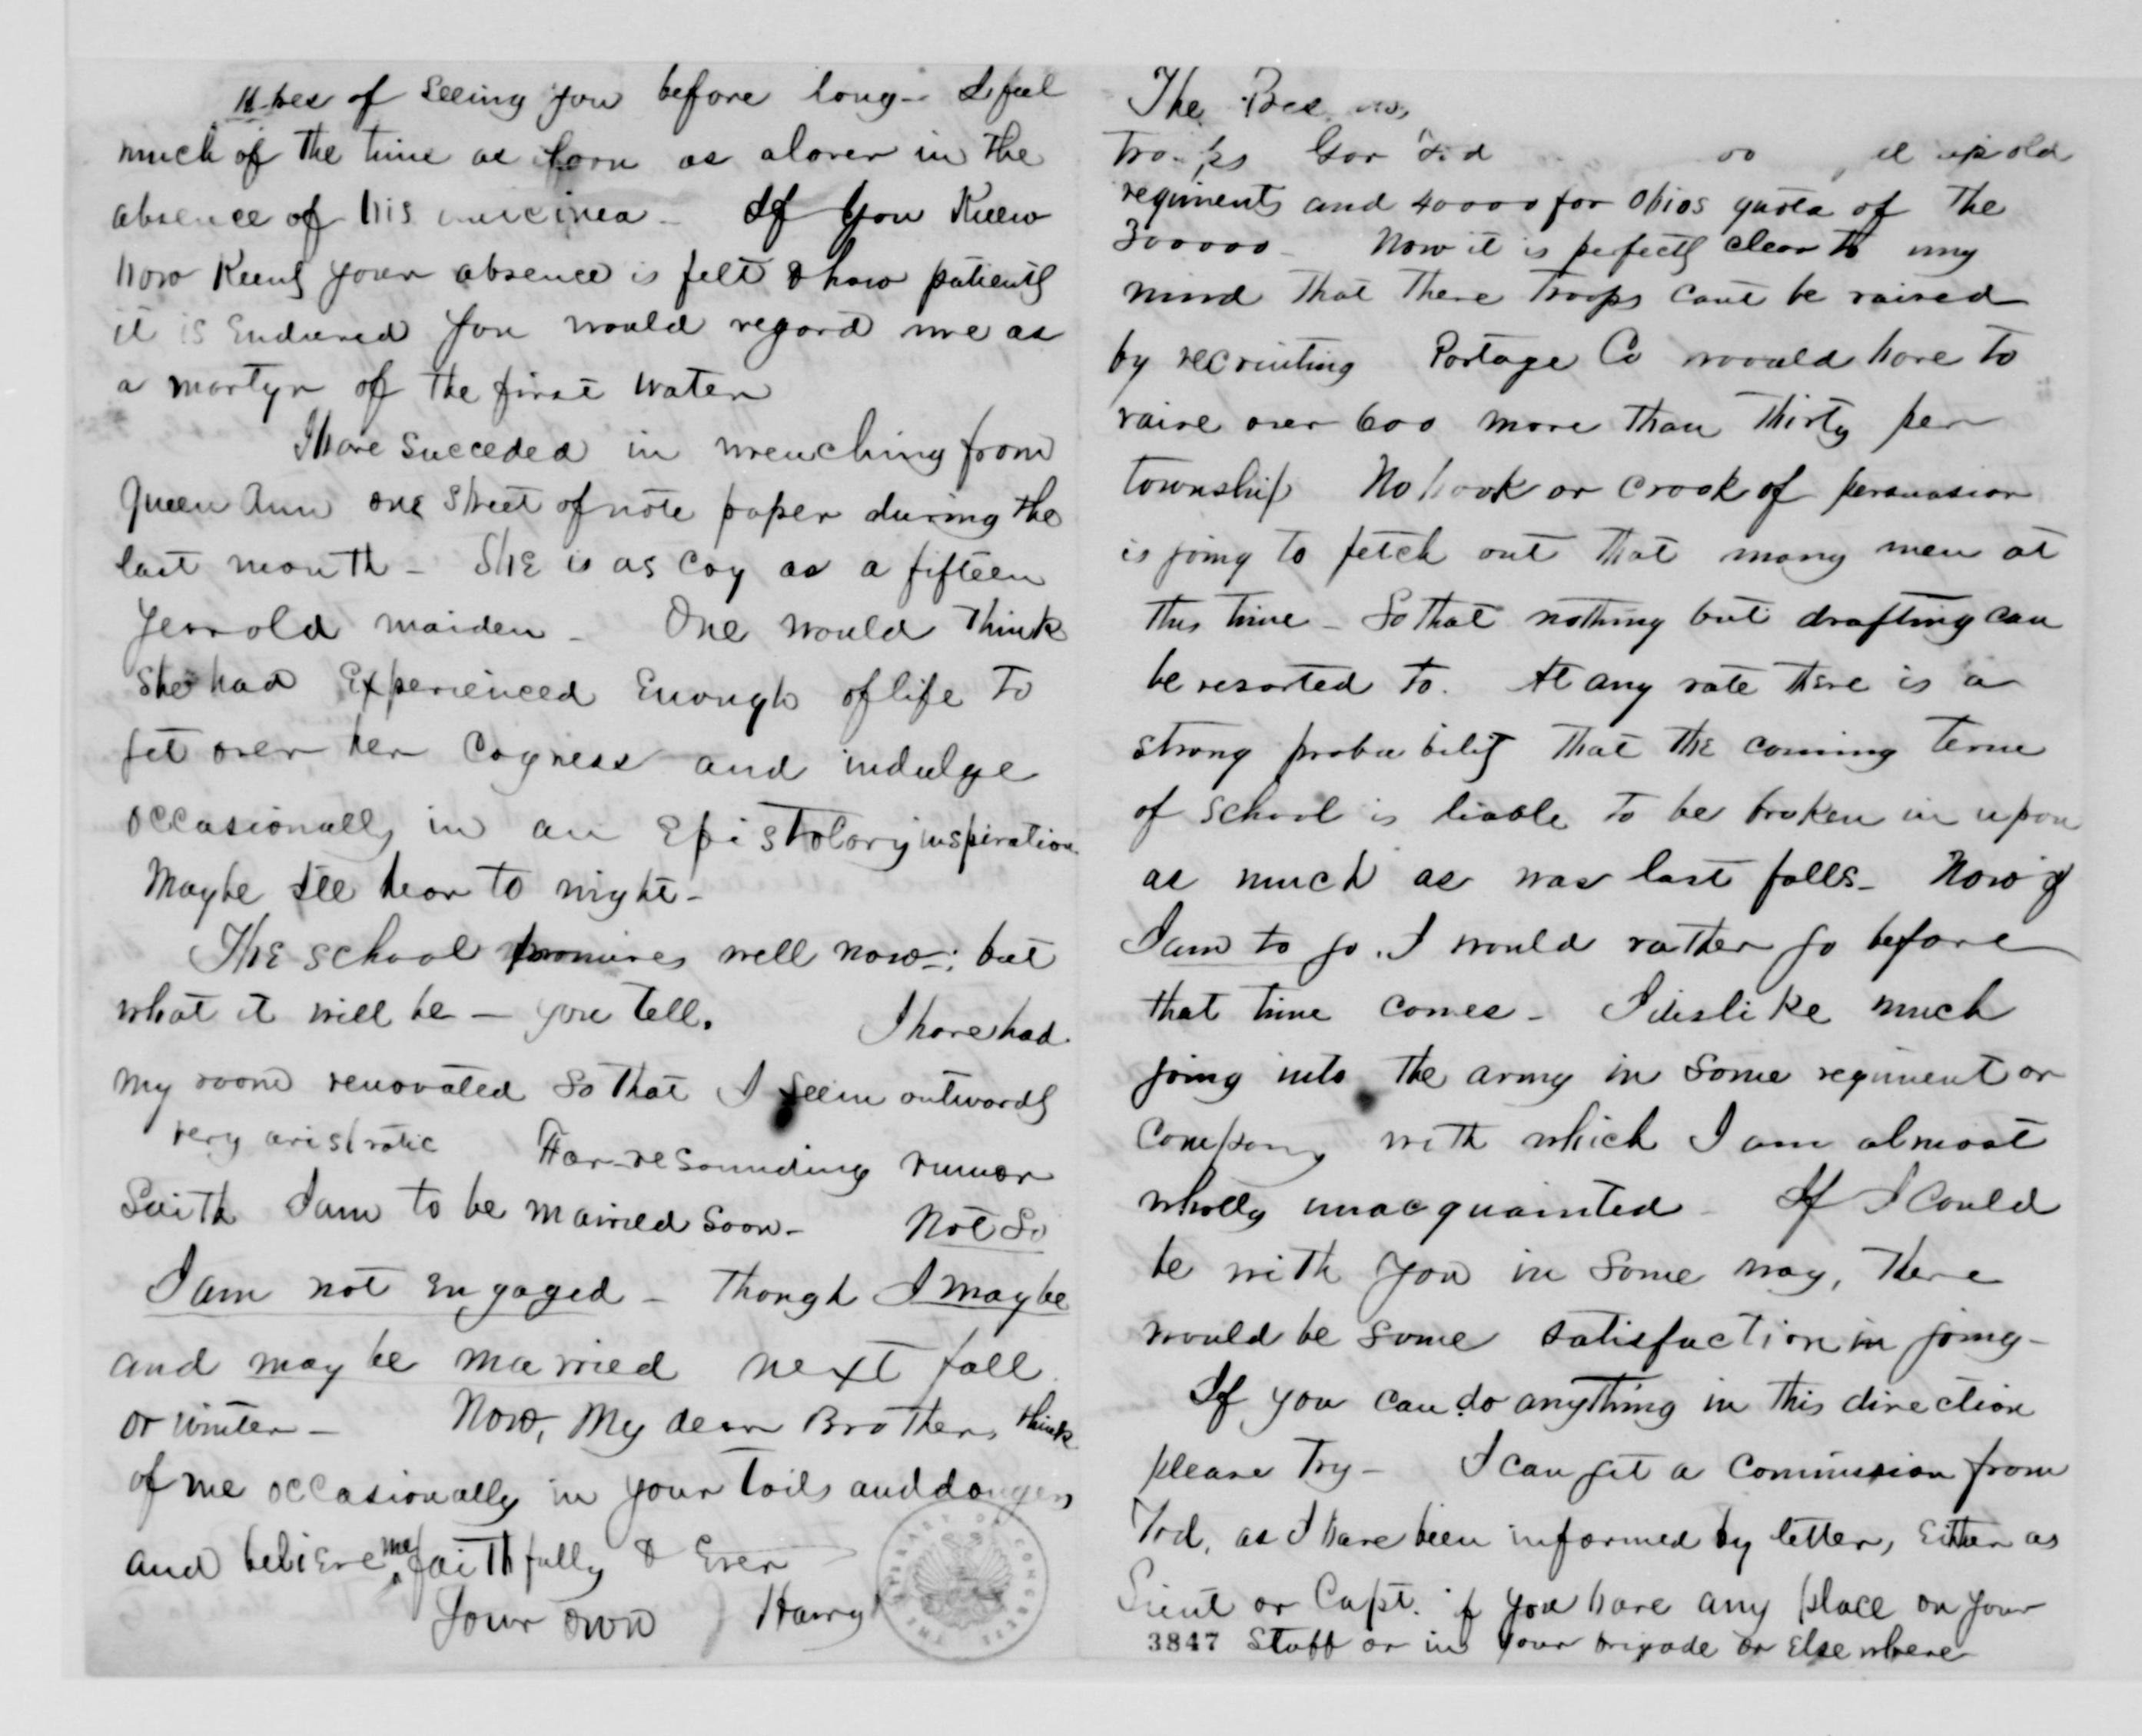 Hopes of seeing you before long - I feel
much of the time as lorn as a lover in the
absence of his If you Knew
how Keenly your absence is felt & how patiently
it is Endured you would regard me as
a martyr of the first water
I have succeded in wrenching from
Queen Ann one sheet of note paper during the
last month - She is as coy as a fifteen
year old maiden - One would think
she had Experienced Enough of life to
get over her coyness and indulge
occasionally in an Epistolary inspiration.
Maybe I'll hear to night -
The school promises well now -; but
what it will be - you tell. I have had
my room renovated so that I seem outwardly
very aristratic Far-resounding rumor
saith I am to be married soon - Not So
I am not engaged - though I may be
and may be married next fall
or winter - Now, my dear Brother, think
of me occasionally in your toils and dangers
and believe me faithfully & Ever
Your own Harry
THE LIBRARY OF CONGRESS
The
troops Gov Tod up old
regiments and 40000 for Ohios quota of the
300000 - Now it is perfectly clear to my
mind that these troops cant be raised
by recruiting Portage Co would have to
raise over 600 more than thirty per
township No hook or crook of persuasion
is going to fetch out that many men at
this time - So that nothing but drafting can
be resorted to. At any rate there is a
strong probability that the coming term
of school is liable to be broken in upon
as much as was last falls - Now if
I am to go. I would rather go before
that time comes - I dislike much
going into the army in some regiment or
company with which I am almost
wholly unacquainted - If I could
be with you in some way, there
would be some satisfaction in going -
If you can do anything in this direction
please try - I can get a commission from
Tod, as I have been informed by letter, Either as
Lieut or Capt. if you have any place on your
3847 staff or in your brigade or Elsewhere